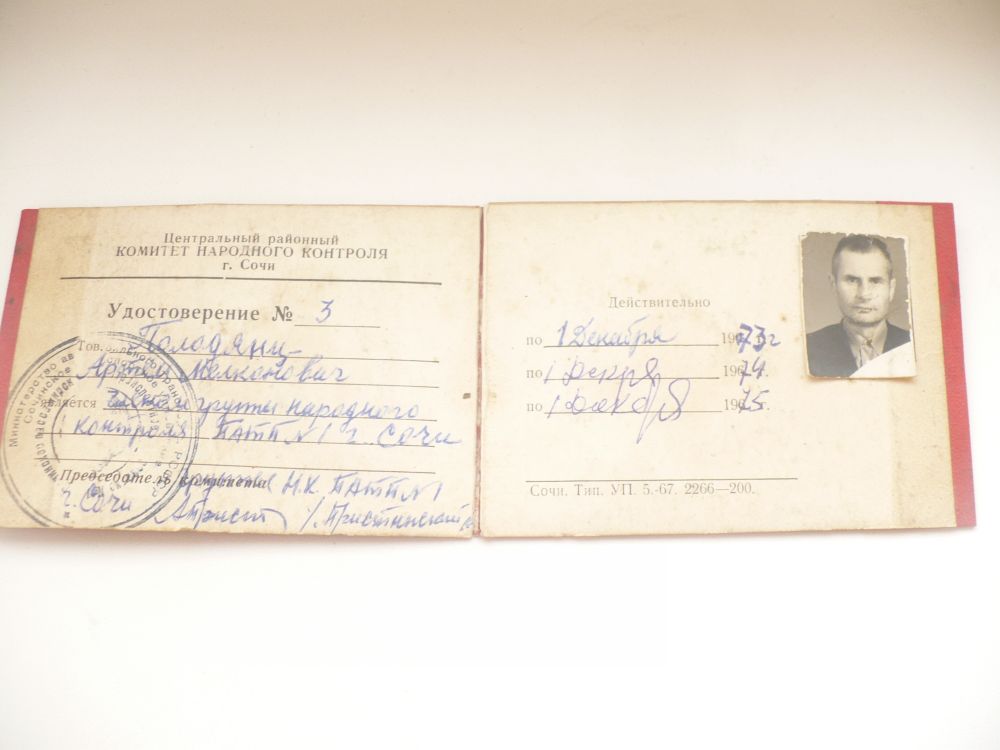 Центральный районный
КОМИТЕТ НАРОДНОГО КОНТРОЛЯ
г. Сочи
Удостоверение № 3
Тов.
Артём Мелконович
является член группы народного
контроля ПАТП №1 г. Сочи
Председатель комитета группы Н.К. ПАТП №1
г. Сочи
Министерство ав
Сочинское
Действительно
по 1 Декабря 1973 г
по 1 Декбря 1974.
по 1 Декабря 1975.
Сочи. Тип. УП. 5.-67. 2266—200.